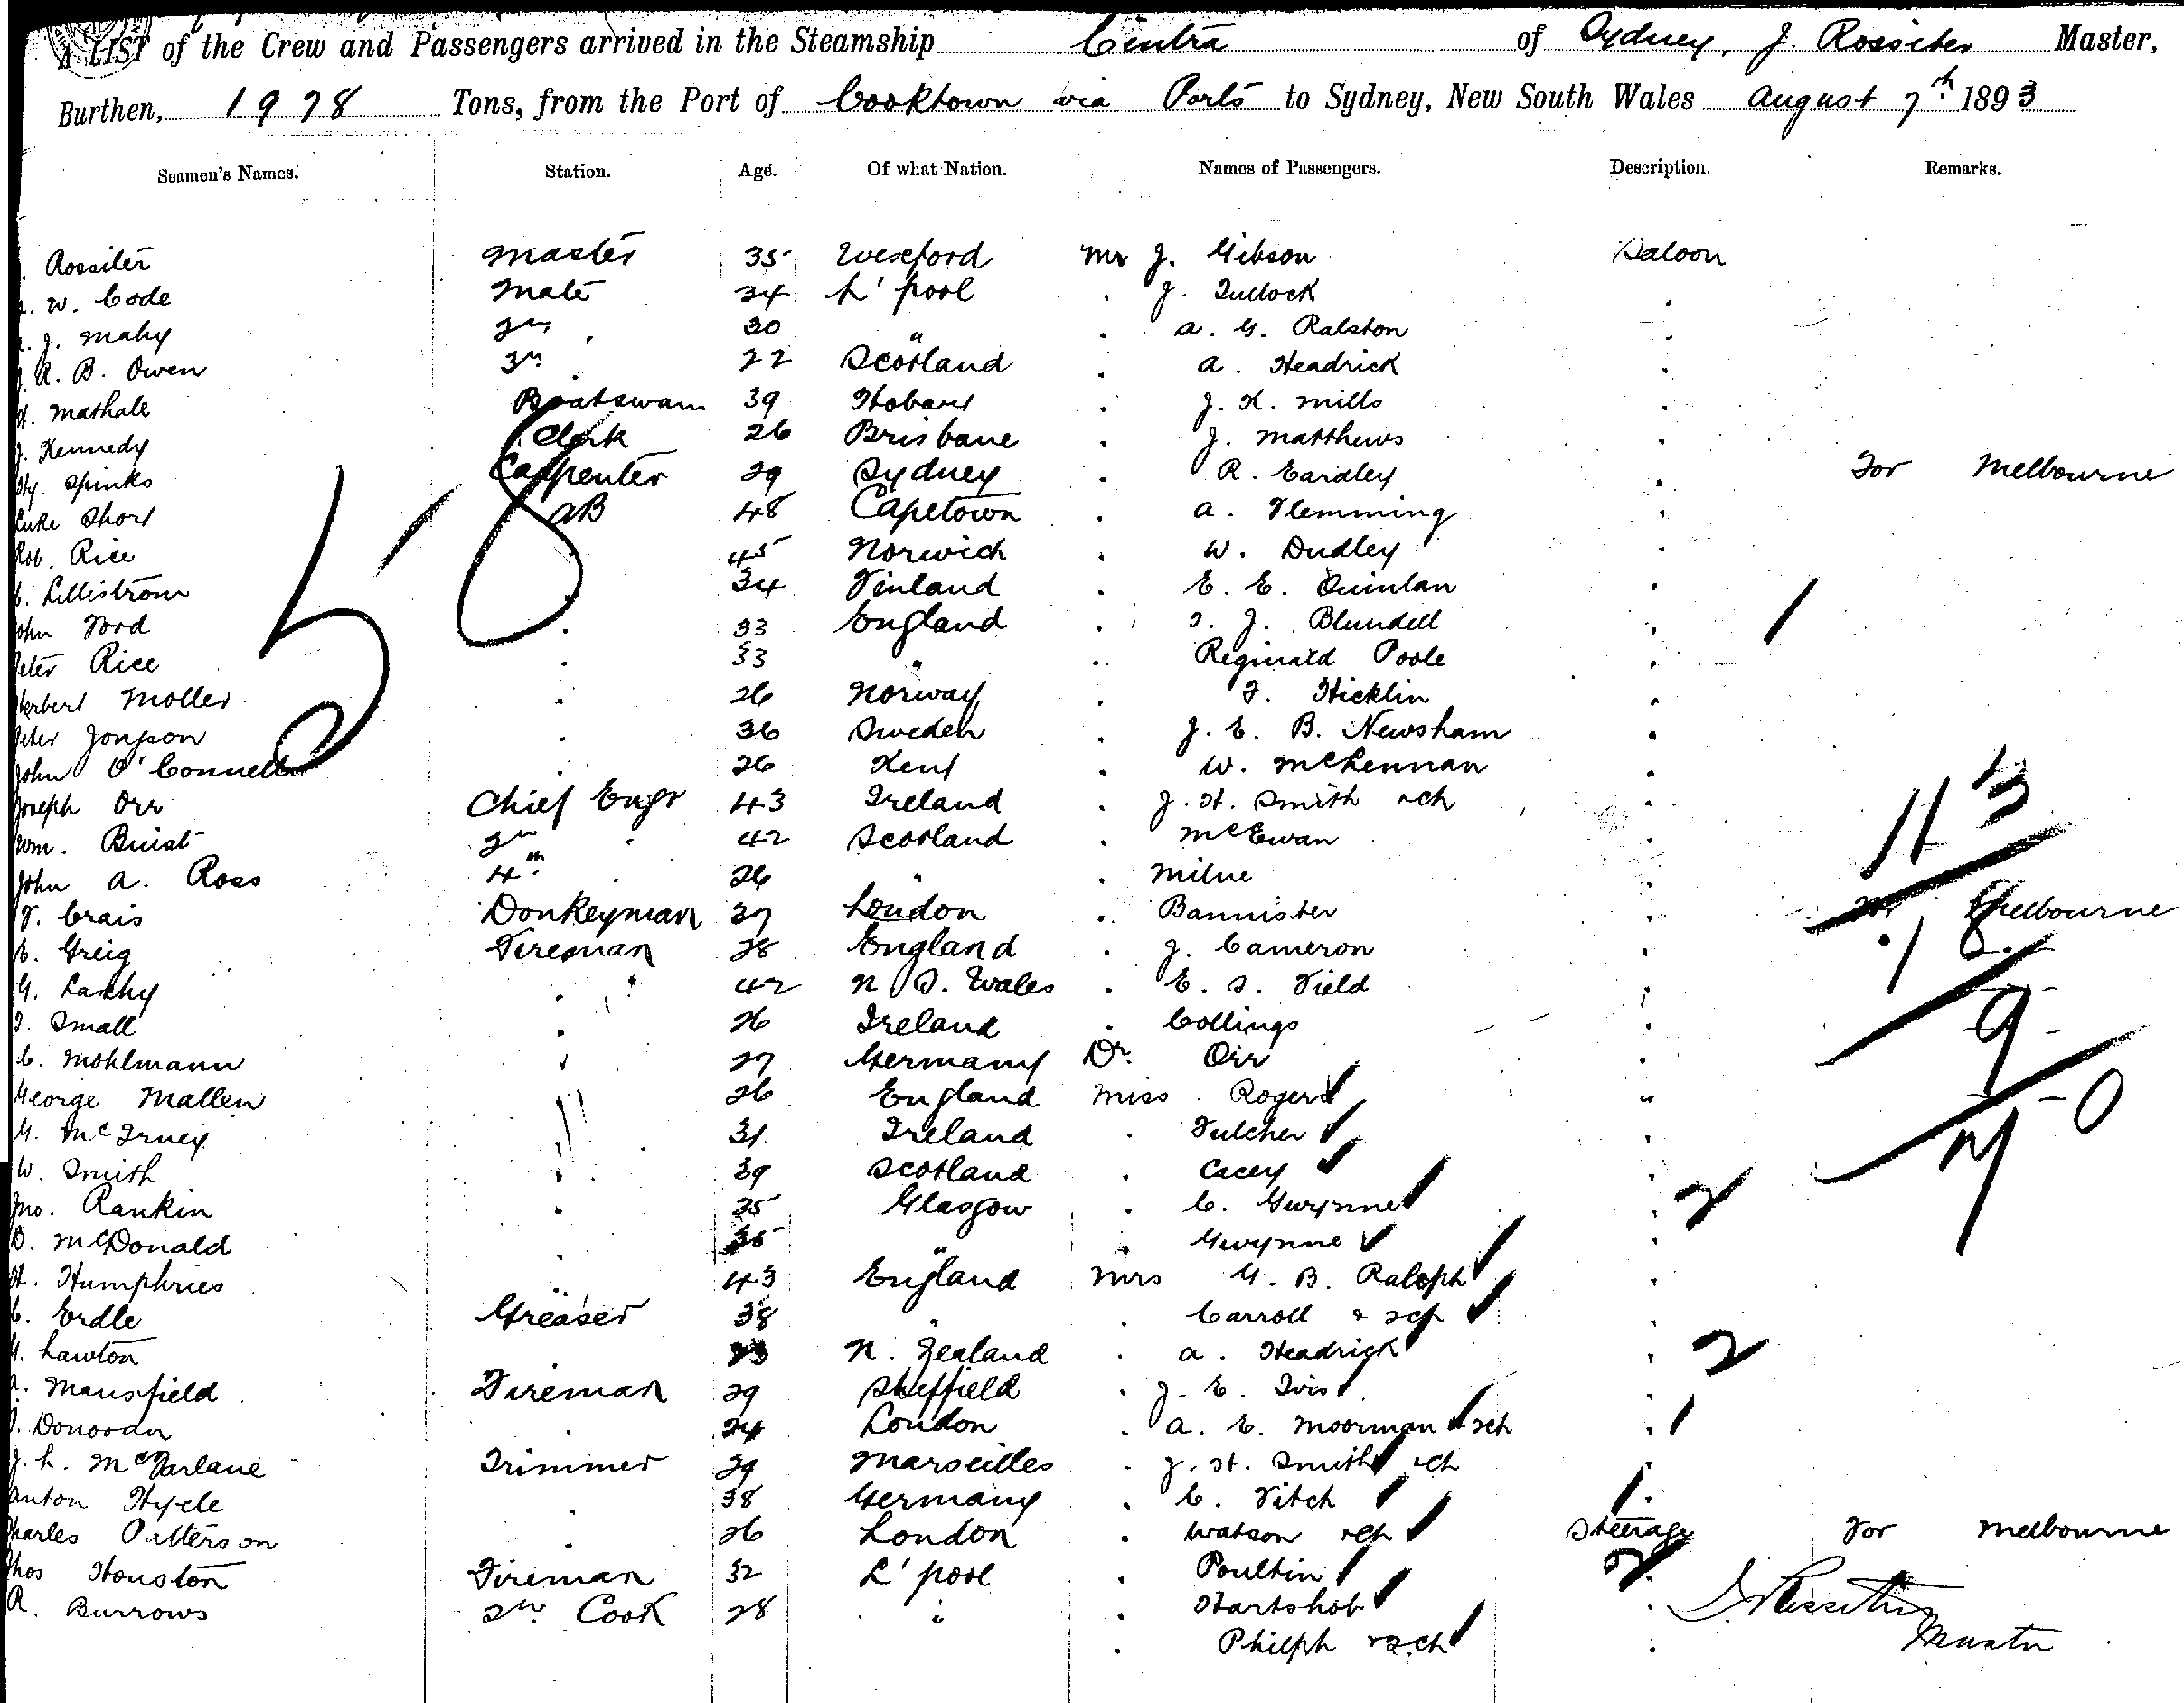 A LIST of the Crew and Passengers arrived in the Steamship Cintra of Sydney, J. Rossiter Master,
Burthen, 1978 Tons, from the Port of Cooktown via Ports to Sydney, New South Wales August 7th 1893
Seamen's Names. Station. Age. Of what Nation. Names of Passengers. Description. Remarks.
Rossiter Master 35 Wexford Mr J. Gibson Saloon
W. Code Mate 34 L'pool . J. Tullock .
J. Mahy 2nd . 30 " . A. G. Ralston .
R. B. Owen 3rd . 22 Scotland . A. Headrick .
Mathale Boatswain 39 Hobart . J. K. Mills .
J. Kennedy Clerk 26 Brisbane . J. Matthews .
Hy. Spinks Carpenter 29 Sydney . R. Eardley . For Melbourne
Luke Short AB 48 Capetown . A. Flemming .
Rob. Rice . 45 Norwich . W. Dudley .
C. Lillistrom . 34 Finland . E. E. Quinlan .
John Ford . 33 England . T. J. Blundell . 1
Peter Rice . 33 " . Reginald Poole .
Herbert Moller . 26 Norway . T. Hicklin .
Peter Jonsson . 36 Sweden . J. E. B. Newsham .
John O'Connell . 26 Kent . W. McLennan .
Joseph Orr Chief Engr 43 Ireland . J. H. Smith & ch . 113
Wm. Buist 2nd . 42 Scotland . McEwan .
John A. Ross 4th . 26 " . Milne .
F. Crais Donkeyman 27 London . Bannister . For Melbourne
E. Greig Fireman 28 England . J. Cameron . 18
G. Lakhy . 42 N. S. Wales . E. S. Field .
T. Small . 26 Ireland . Collings . 9
C. Mohlmann . 27 Germany Dr. Orr .
George Mallen . 26 England Miss Rogers "
G. McTruey . 31 Ireland . Fulcher .
W. Smith . 39 Scotland . Cacey .
Jno. Rankin . 35 Glasgow . C. Gwynne . 2
D. McDonald . 36 " . Gwynne .
H. Humphries . 43 England Mrs G. B. Ralph .
C. Erdle Greaser 38 " . Carroll & 2ch .
G. Lawton . 23 N. Zealand . A. Headrick . 2
A. Mansfield Fireman 29 Sheffield . J. E. Ivis .
Donovan . 24 London . A. E. Moorman & 2ch . 1
J. L. McFarlane Trimmer 29 Marseilles . J. H. Smith & ch .
Anton Hyde . 38 Germany . C. Fitch . 1
Charles Patterson . 26 London . Watson & ch Steerage For Melbourne
Thos Houston Fireman 32 L'pool . Poultin . 2
R. Burrows 2nd Cook 28 " . Hartshob . J. Rossiter
. Philph & 2ch . Master
58